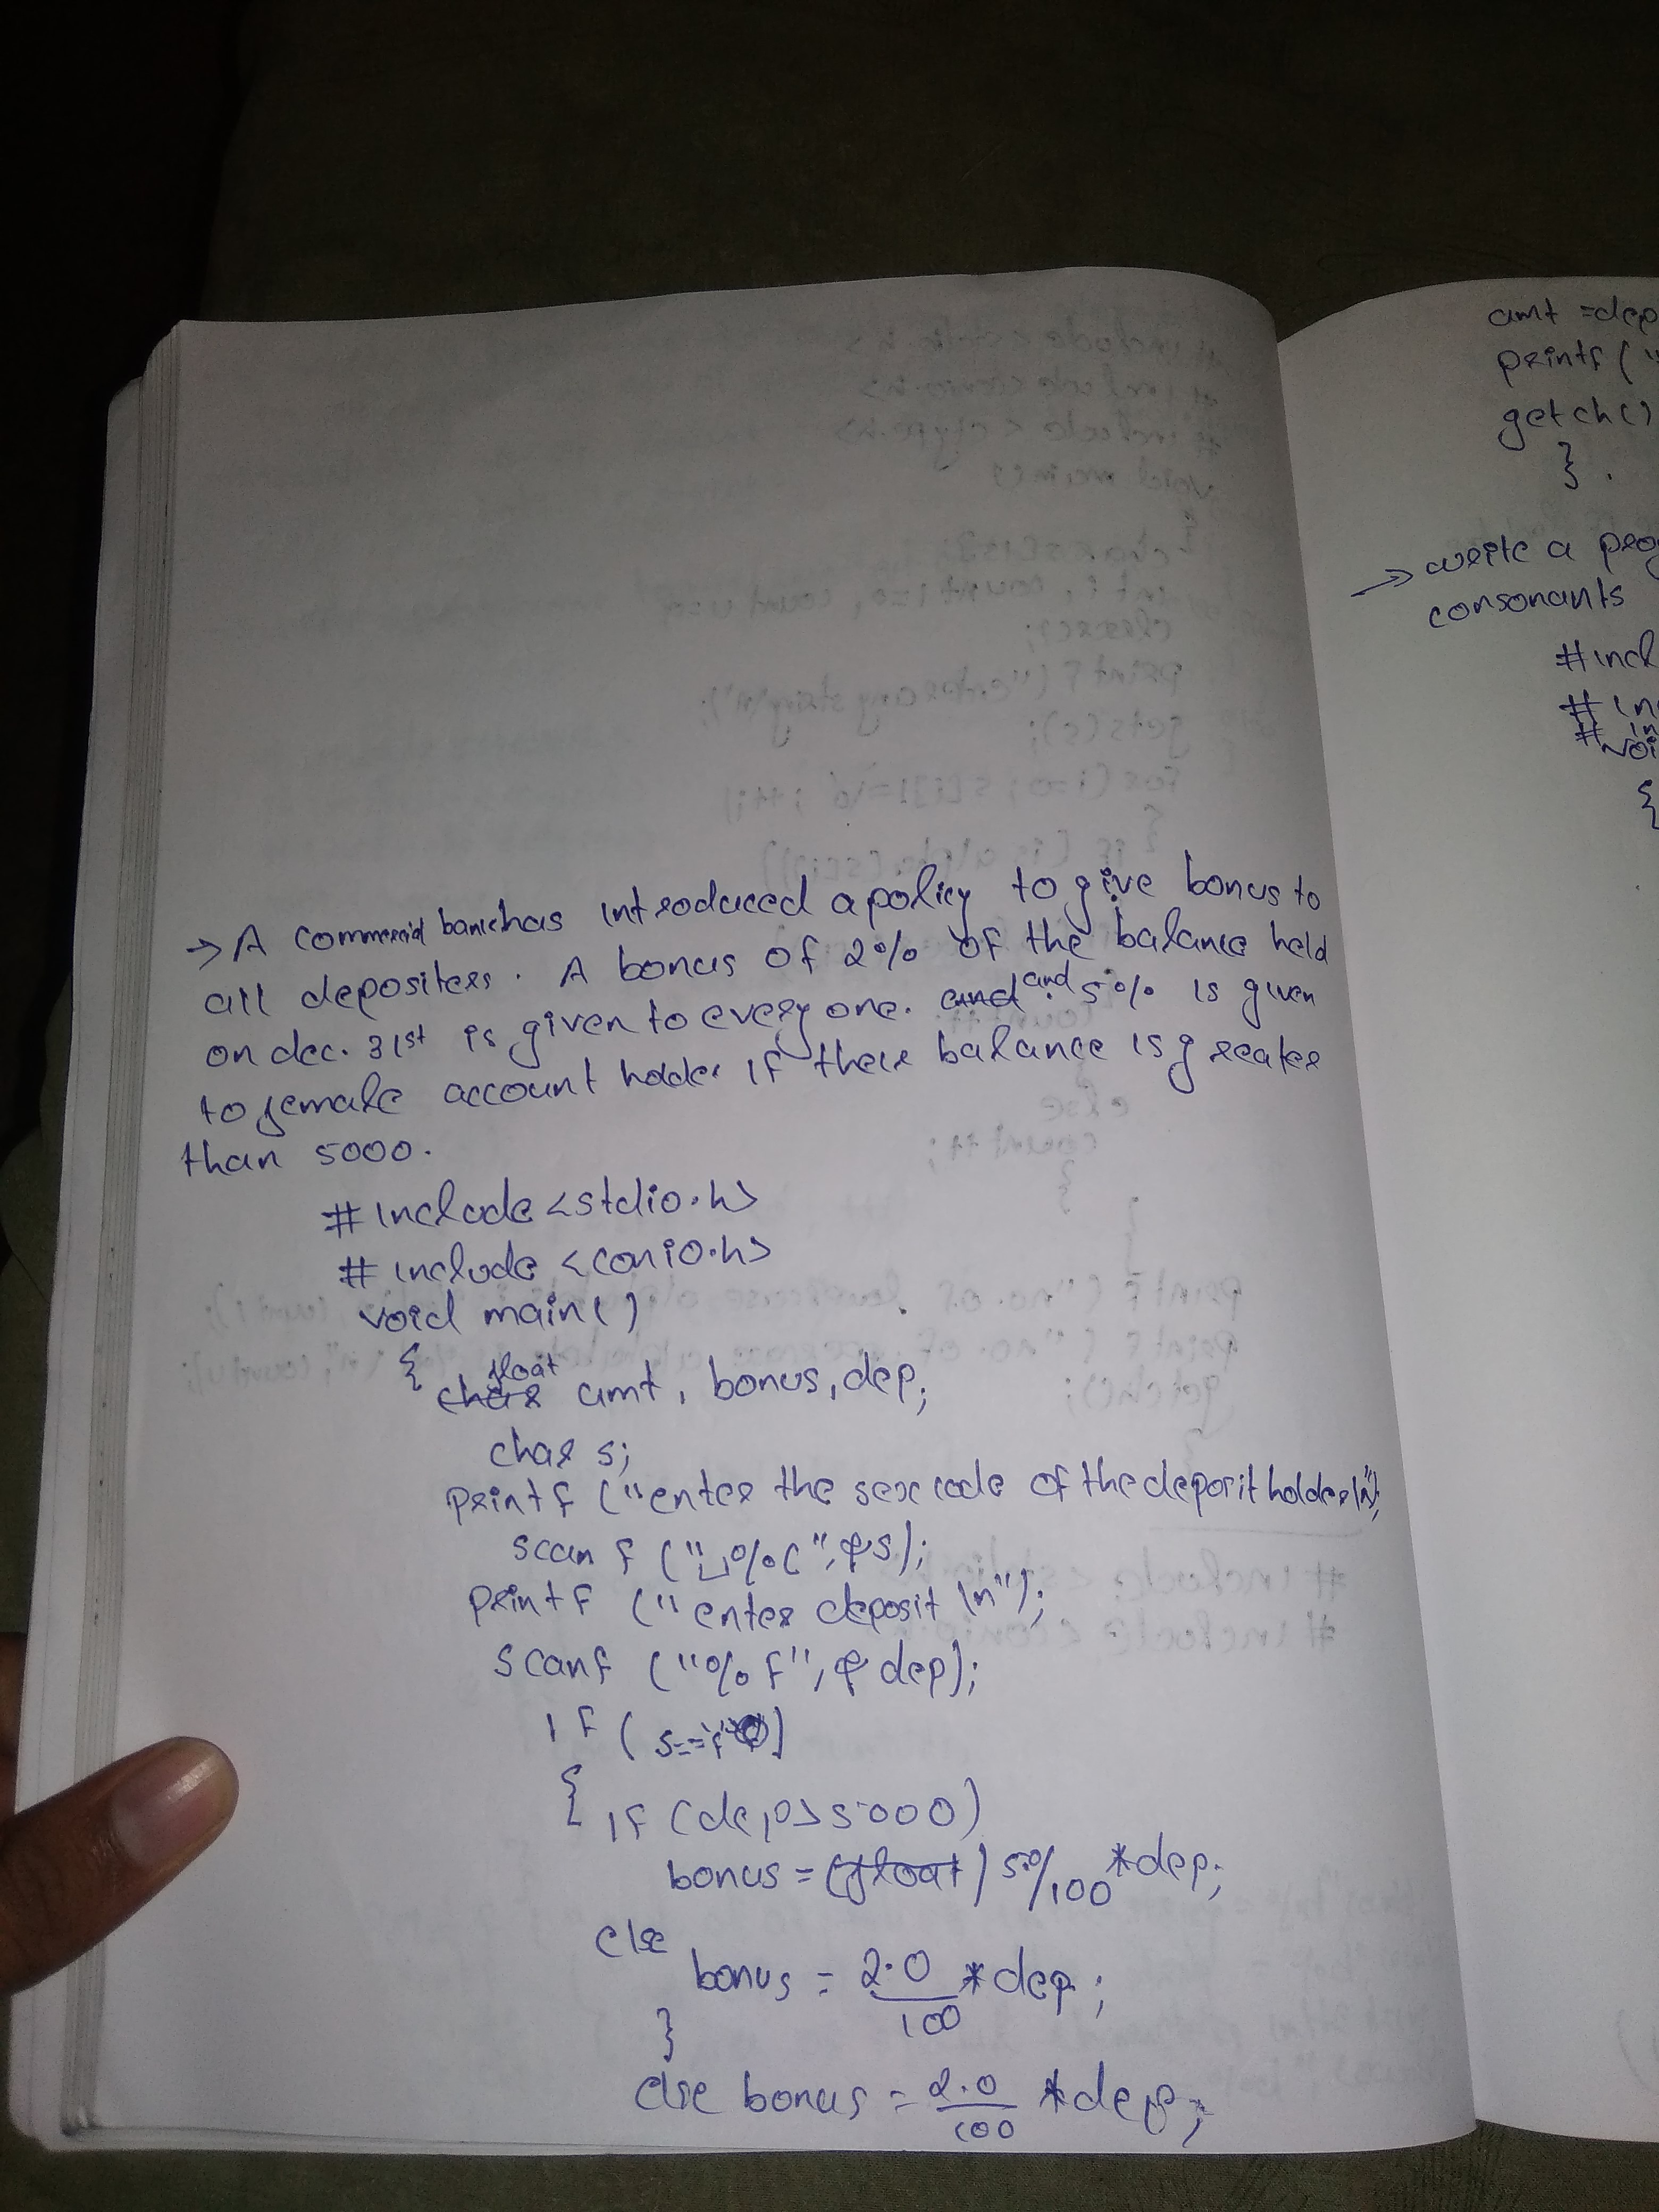 → A commercial bank has introduced a policy to give bonus to
all depositers. A bonus of 2% of the balance held
on dec. 31st is given to every one. and and 5% is given
to female account holder if there balance is greater
than 5000.
#include <stdio.h>
#include <conio.h>
void main()
{ char float amt, bonus, dep;
char s;
printf ("enter the sex code of the deposit holder\n");
scanf ("␣%c", &s);
printf ("enter deposit \n");
scanf ("%f", &dep);
if (s==
{ if (dep>5000)
bonus = (float) 5.0/100 *dep;
else
bonus = 2.0/100 *dep;
}
else bonus = 2.0/100 *dep;
amt =dep
printf ("
getch()
}.
→ write a prog
consonants
#incl
#in
#in
voi
{